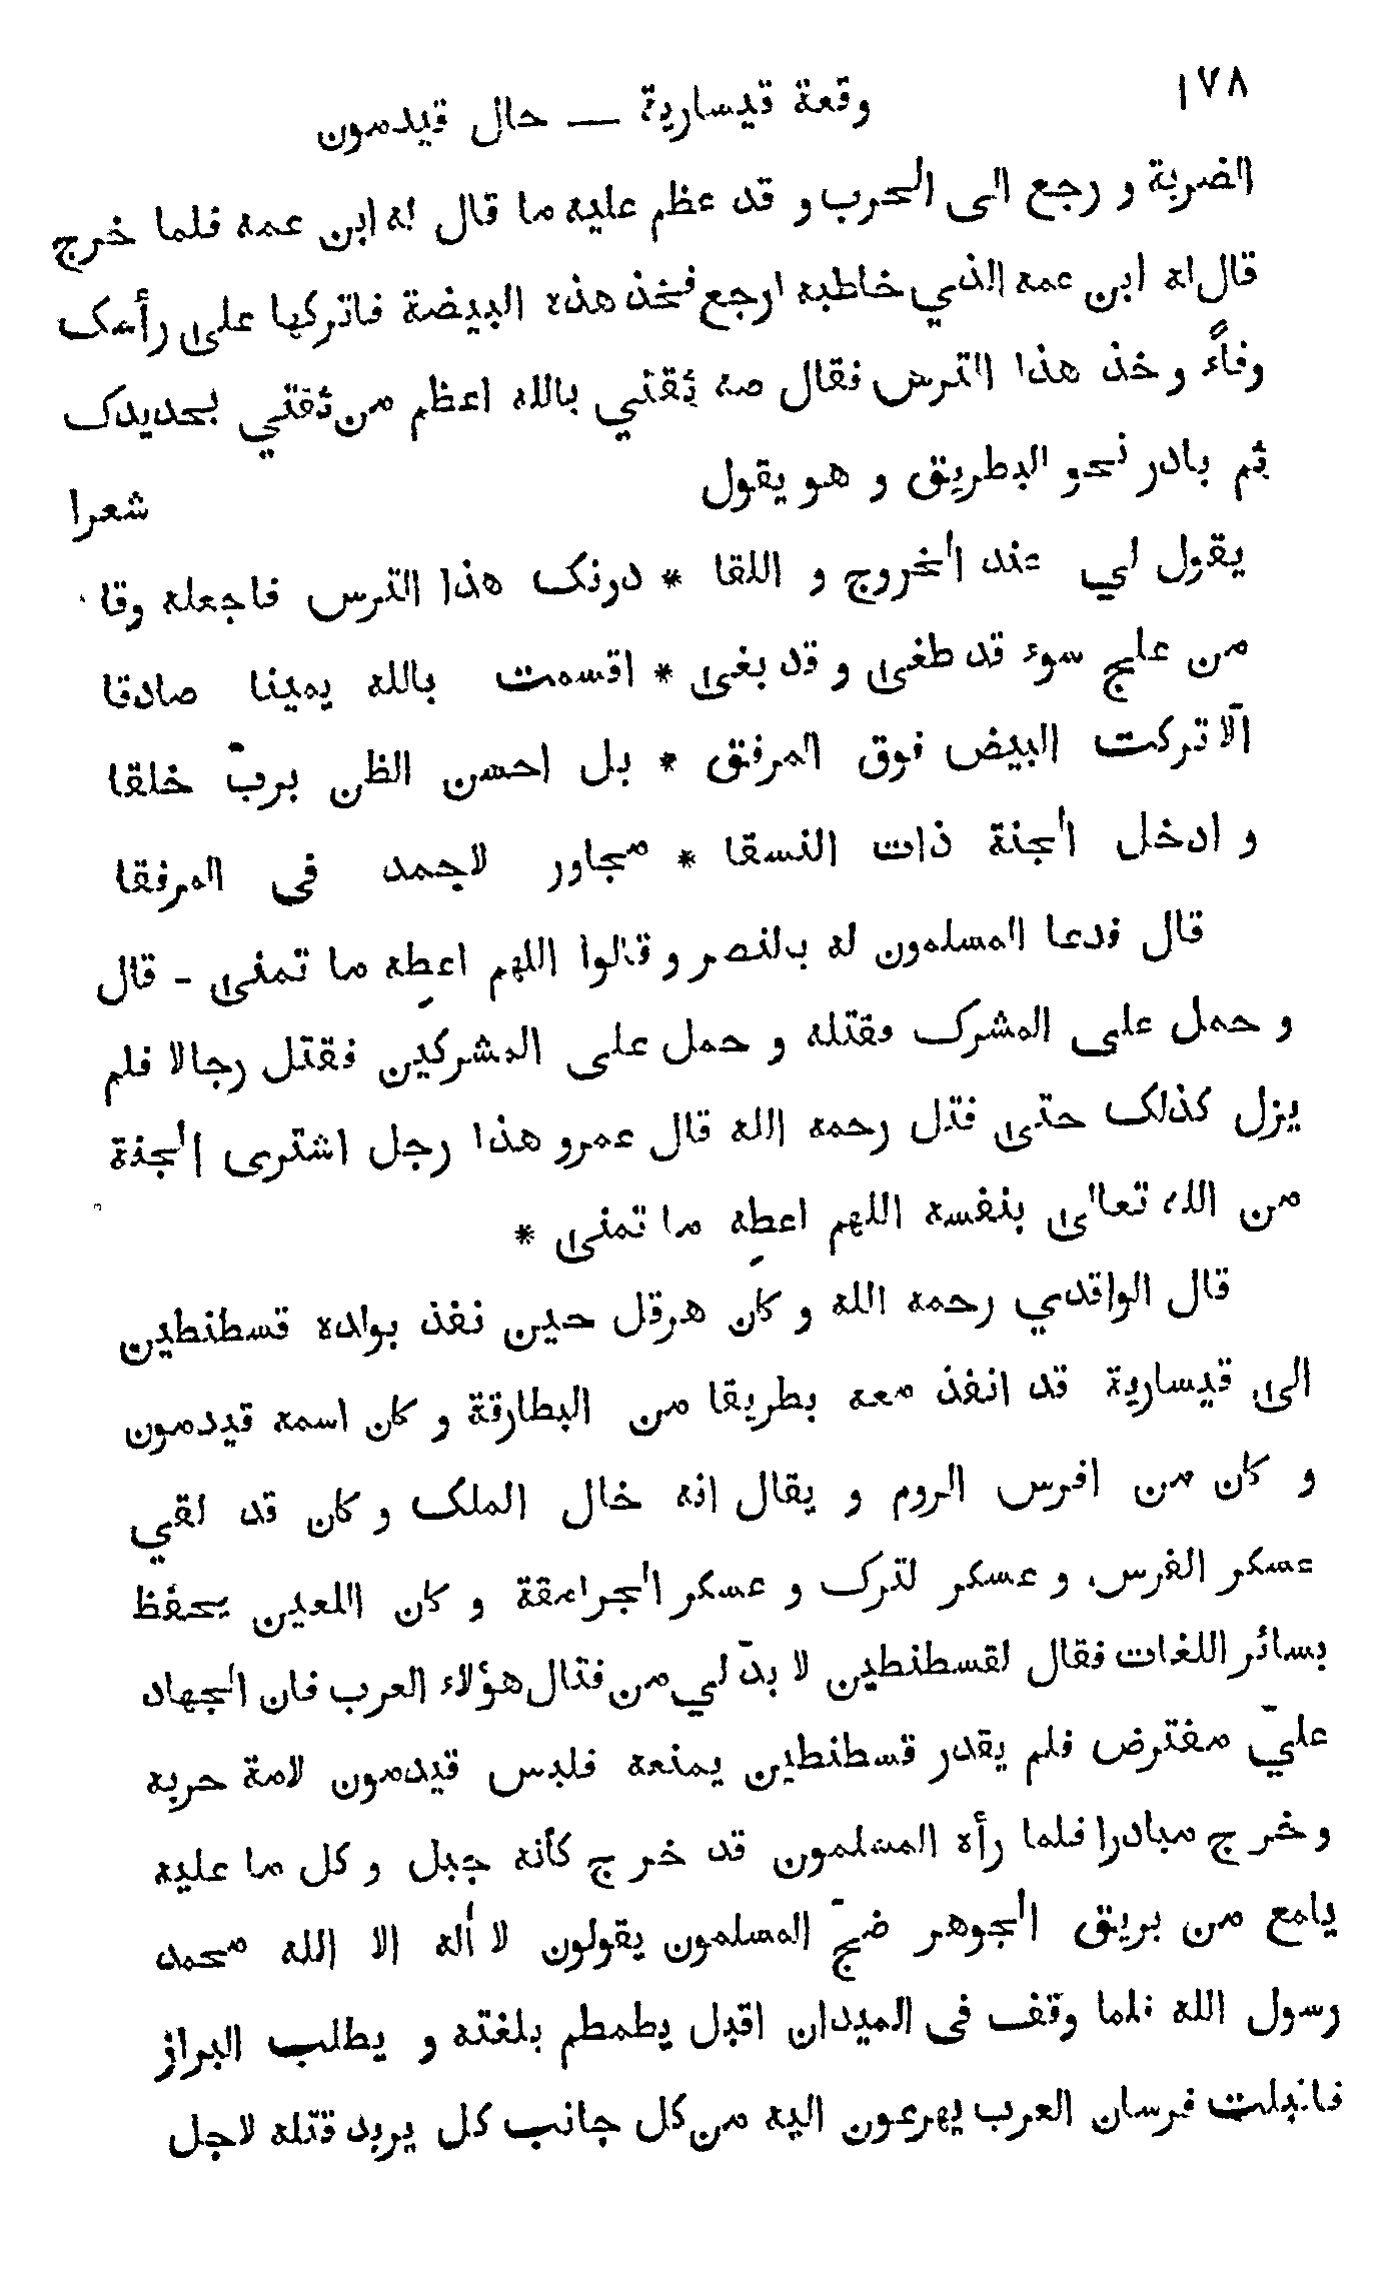 ١٧٨
وقعة قيسارية — حال قيدمون
الضربة و رجع الى الحرب و قد عظم عليه ما قال له ابن عمه فلما خرج
قال له ابن عمه الذي خاطبه ارجع فخذ هذه البيضة فاتركها على رأسك
وقاًء و خذ هذا الترس فقال صه ثقتي بالله اعظم من ثقتي بحديدك
ثم بادر نحو البطريق و هو يقول شعرا
يقول لي عند الخروج و اللقا * دونك هذا الترس فاجعله وقا
من علج سوء قد طغى و قد بغى * اقسمت بالله يمينا صادقا
الّا تركت البيض فوق المرفق * بل احسن الظن بربّ خلقا
و ادخل الجنة ذات النسقا * مجاور لاحمد في المرفقا
قال فدعا المسلمون له بالنصر و قالوا اللهم اعطِه ما تمنى - قال
و حمل على المشرك فقتله و حمل على المشركين فقتل رجالا فلم
يزل كذلك حتى قتل رحمه الله قال عمرو هذا رجل اشترى الجنة
من الله تعالى بنفسه اللهم اعطِه ما تمنى *
قال الواقدي رحمه الله و كان هرقل حين نفذ بولده قسطنطين
الى قيسارية قد انفذ معه بطريقا من البطارقة و كان اسمه قيدمون
و كان من افرس الروم و يقال انه خال الملك و كان قد لقي
عسكر الفرس و عسكر لترك و عسكر الجرامقة و كان اللعين يحفظ
بسائر اللغات فقال لقسطنطين لا بدّ لي من قتال هؤلاء العرب فان الجهاد
عليّ مفترض فلم يقدر قسطنطين يمنعه فلبس قيدمون لامة حربه
و خرج مبادرا فلما رأه المسلمون قد خرج كأنه جبل و كل ما عليه
يلمع من بريق الجوهر ضجّ المسلمون يقولون لا أله الا الله محمد
رسول الله فلما وقف في الميدان اقبل يطمطم بلغته و يطلب البراز
فاقبلت فرسان العرب يهرعون اليه من كل جانب كل يريد قتله لاجل